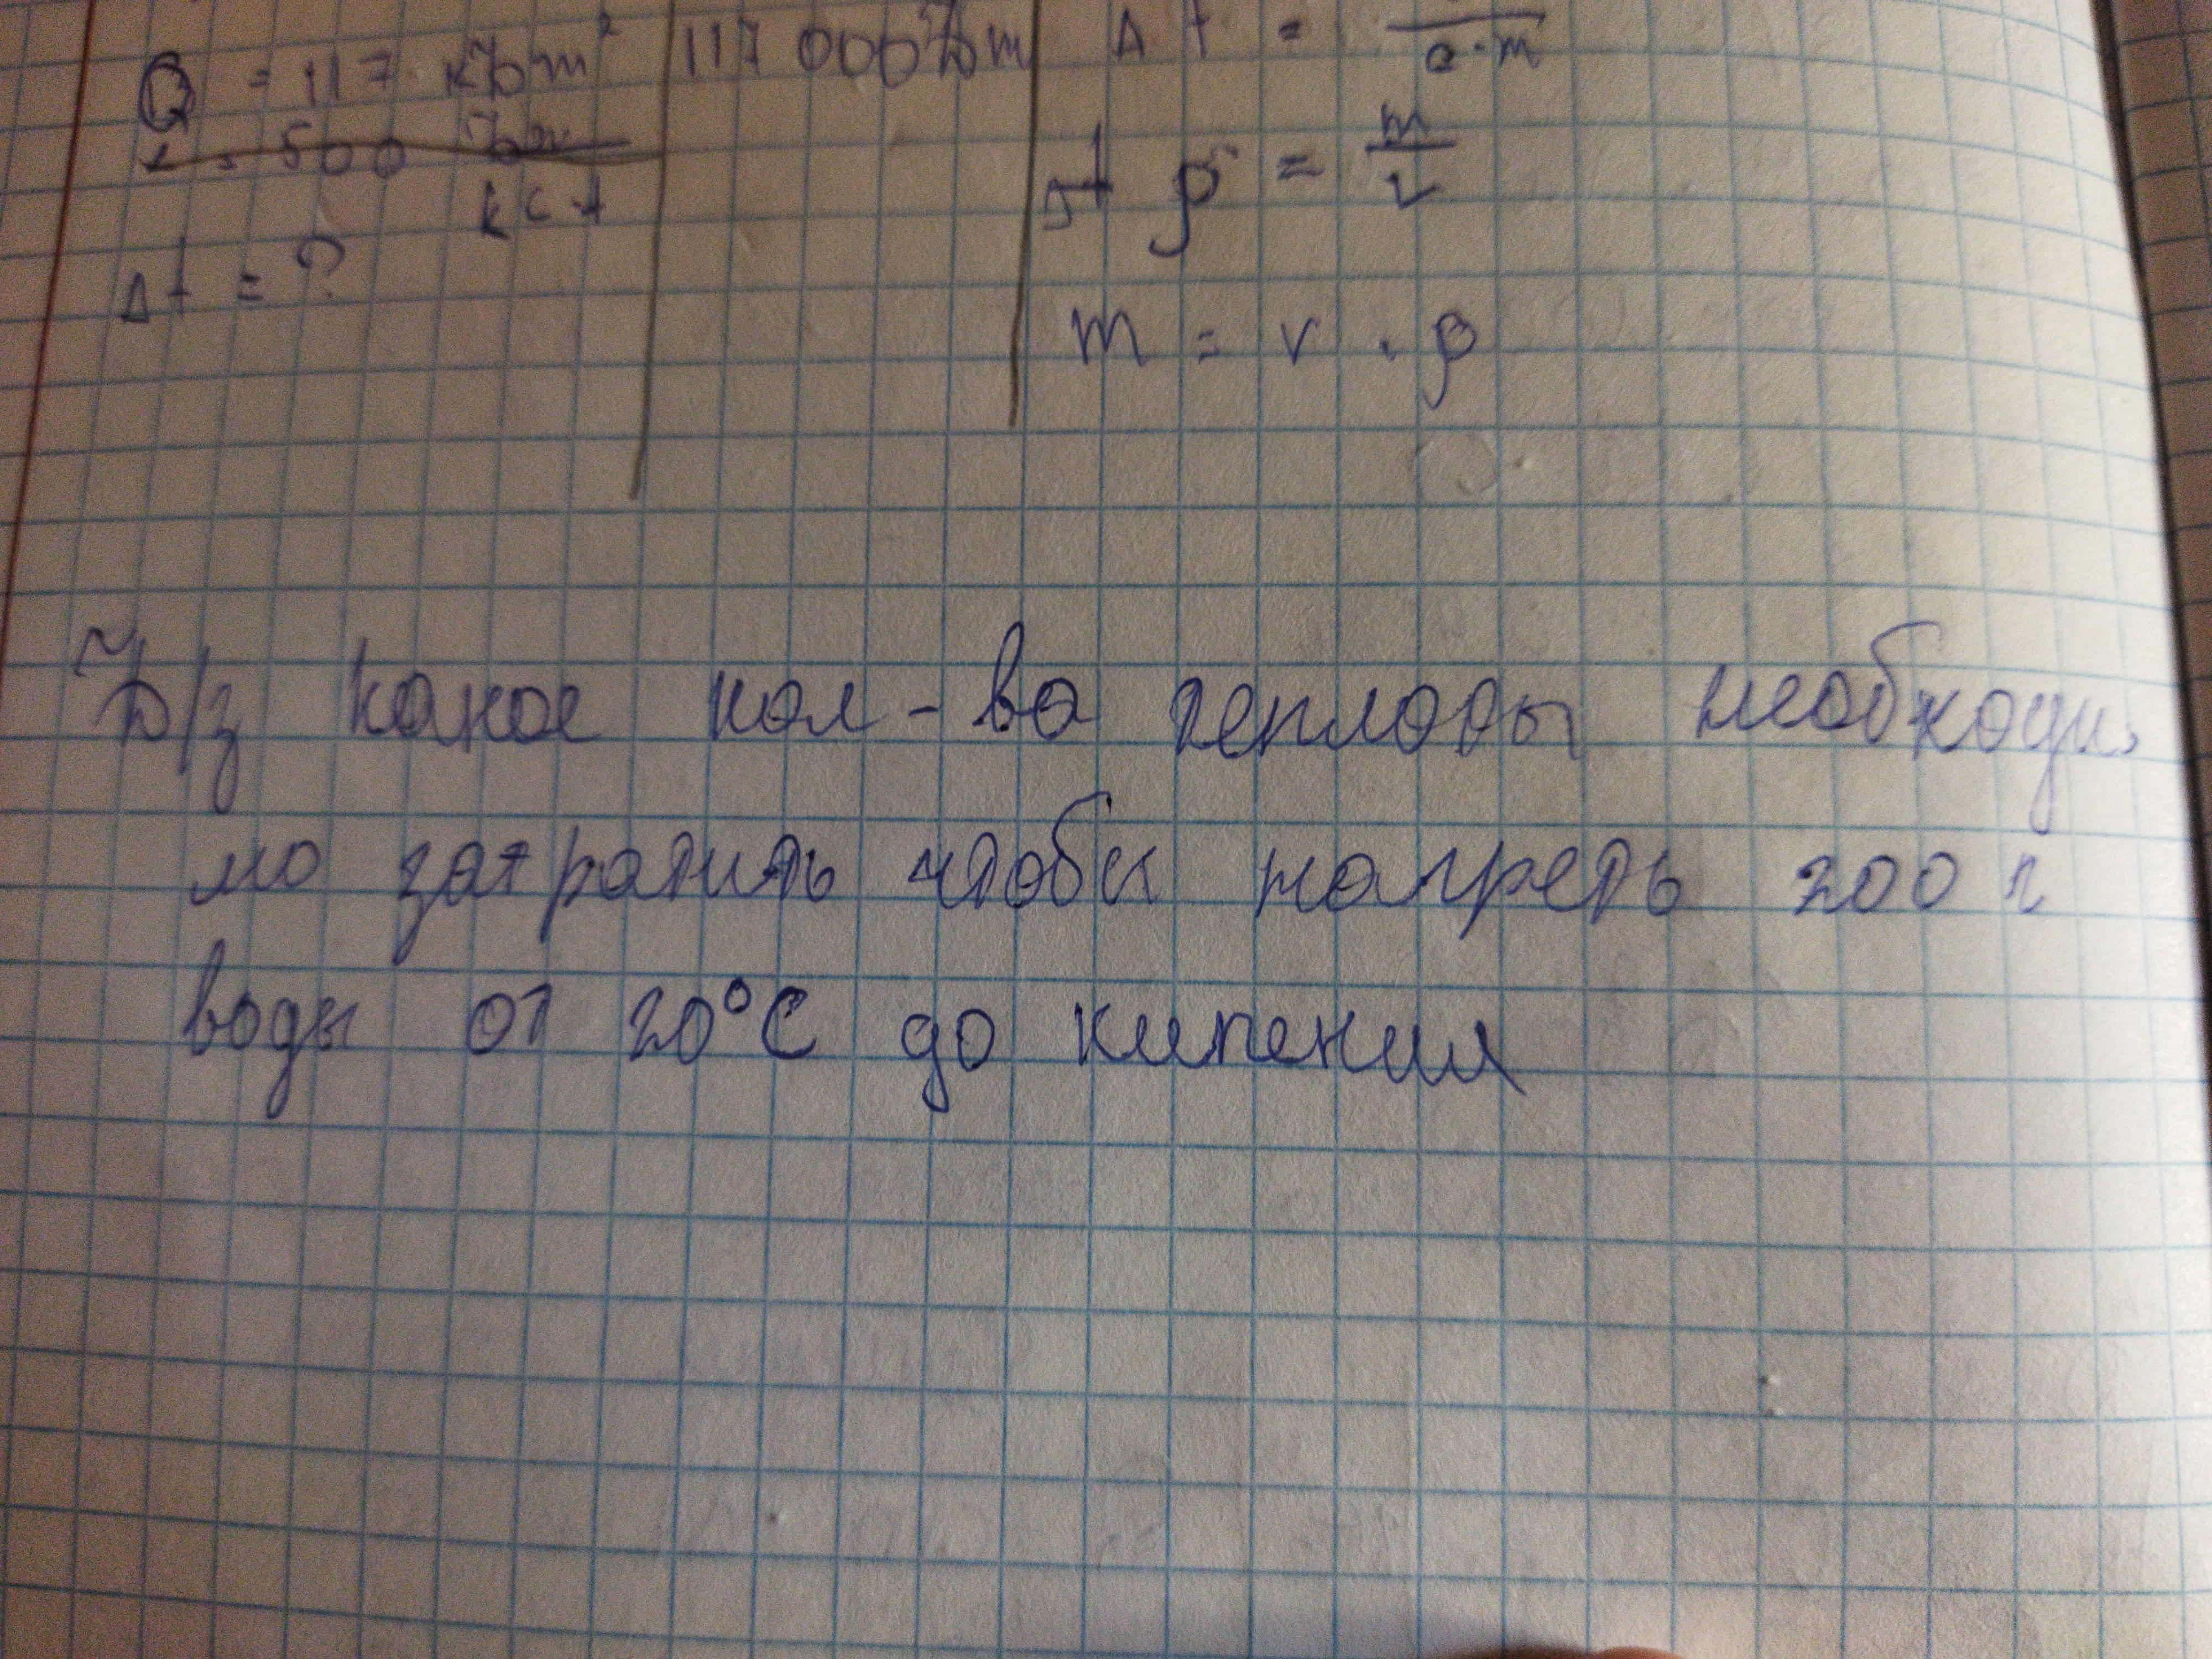 Q = 117 кДж 117 000 Дж Δt =
c · m
500 Дж
кг
ρ = m
V
Δt = ?
m = v · ρ
Д/з какое кол-во теплоты необходи
мо затратить чтобы нагреть 200 г
воды от 20°C до кипения